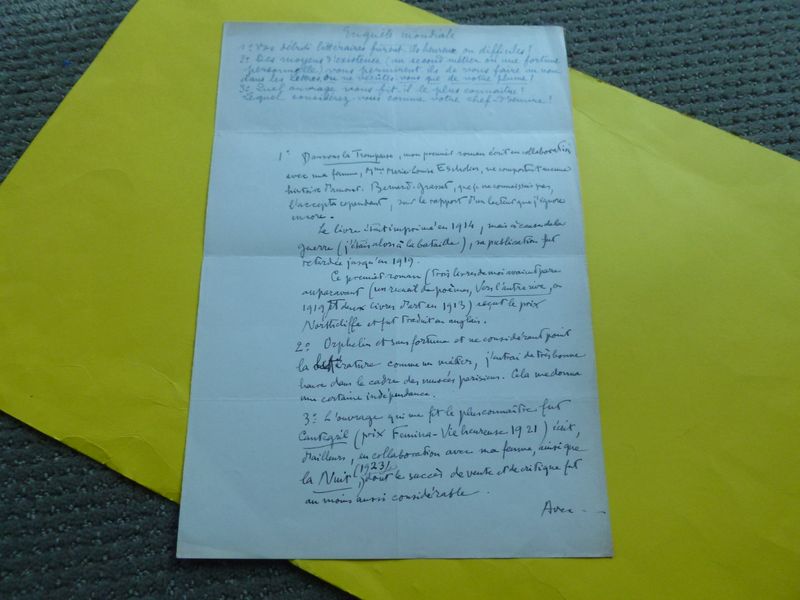 Enquête mondiale
1° Vos débuts littéraires furent-ils heureux ou difficiles?
2° Des moyens d'existence (un second métier ou une fortune
personnelle) vous permirent ils de vous faire un nom
dans les lettres ou ne vécûtes vous que de votre plume?
3° Quel ouvrage vous fit-il le plus connaître?
Lequel considérez-vous comme votre chef-d'œuvre?
1° Dansons la Trompeuse, mon premier roman écrit en collaboration
avec ma femme, Mme Marie-Louise Escholier, ne comportait même
histoire d'amour. Bernard Grasset, que je ne connaissais pas,
l'accepta cependant, sur le rapport d'un lecteur que j'ignore
encore.
Le livre était imprimé en 1914, mais à cause de la
guerre (j'étais alors à la bataille), sa publication fut
retardée jusqu'en 1919.
Ce premier roman (trois livres de moi avaient paru
auparavant (un recueil de poèmes, Vers l'autre rive, en
et deux livres d'art en 1913) reçut le prix
Northcliffe et fut traduit en anglais.
2° Orphelin et sans fortune et ne considérant point
la littérature comme un métier, j'entrai de très bonne
heure dans le cadre des musées parisiens. Cela me donna
une certaine indépendance.
3° L'ouvrage qui me fit le plus connaître fut
Cantegril (prix Femina-Vie heureuse 1921) écrit,
d'ailleurs, en collaboration avec ma femme, ainsi que
la Nuit (1923), dont le succès de vente et de critique fut
au moins aussi considérable.
Avec